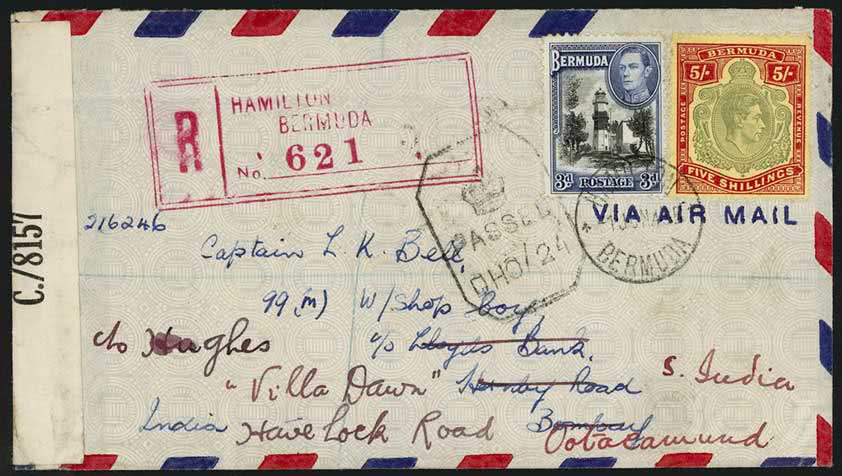 C./8157
R
HAMILTON
BERMUDA
No. 621
BERMUDA
3d. POSTAGE 3d.
BERMUDA
5/- 5/-
POSTAGE REVENUE
FIVE SHILLINGS
VIA AIR MAIL
PASSED
DHO/24
BERMUDA
216246
Captain L. K. Bell,
99 (m) W/Shop Coy,
c/o Lloyds Bank,
Hornby Road
Bombay
India
c/o Hughes
"Villa Dawn"
Havelock Road
Ootacamund
S. India